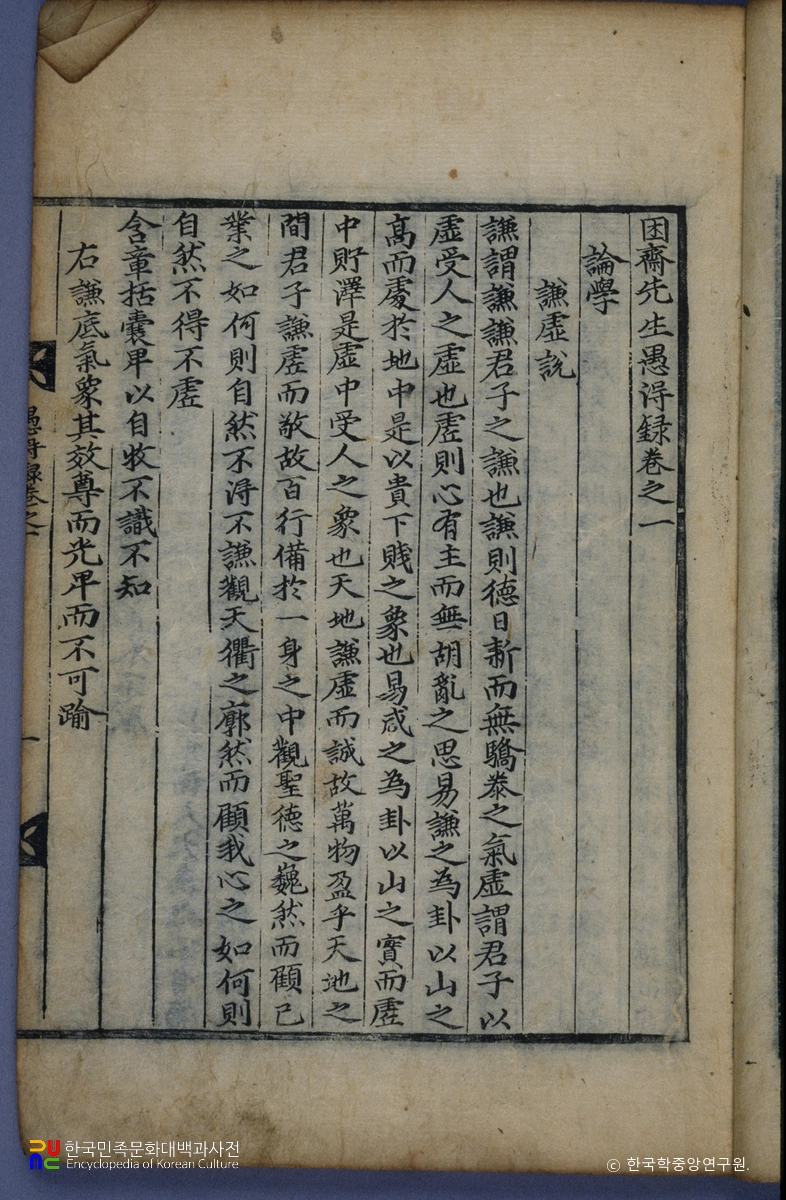 困齋先生愚淂録卷之一
論學
謙虛說
謙謂謙謙君子之謙也謙則德日新而無驕泰之氣虛謂君子以
虛受人之虛也虛則心有主而無胡亂之思易謙之為卦以山之
高而處於地中是以貴下賤之象也易咸之為卦以山之實而虛
中貯澤是虛中受人之象也天地謙虛而誠故萬物盈乎天地之
間君子謙虛而敬故百行備於一身之中觀聖德之巍然而顧已
業之如何則自然不淂不謙觀天衢之廓然而顧我心之如何則
自然不得不虛
含章括囊卑以自牧不識不知
右謙底氣象其效尊而光卑而不可踰
愚淂録卷之一
一
한국민족문화대백과사전
Encyclopedia of Korean Culture
© 한국학중앙연구원.